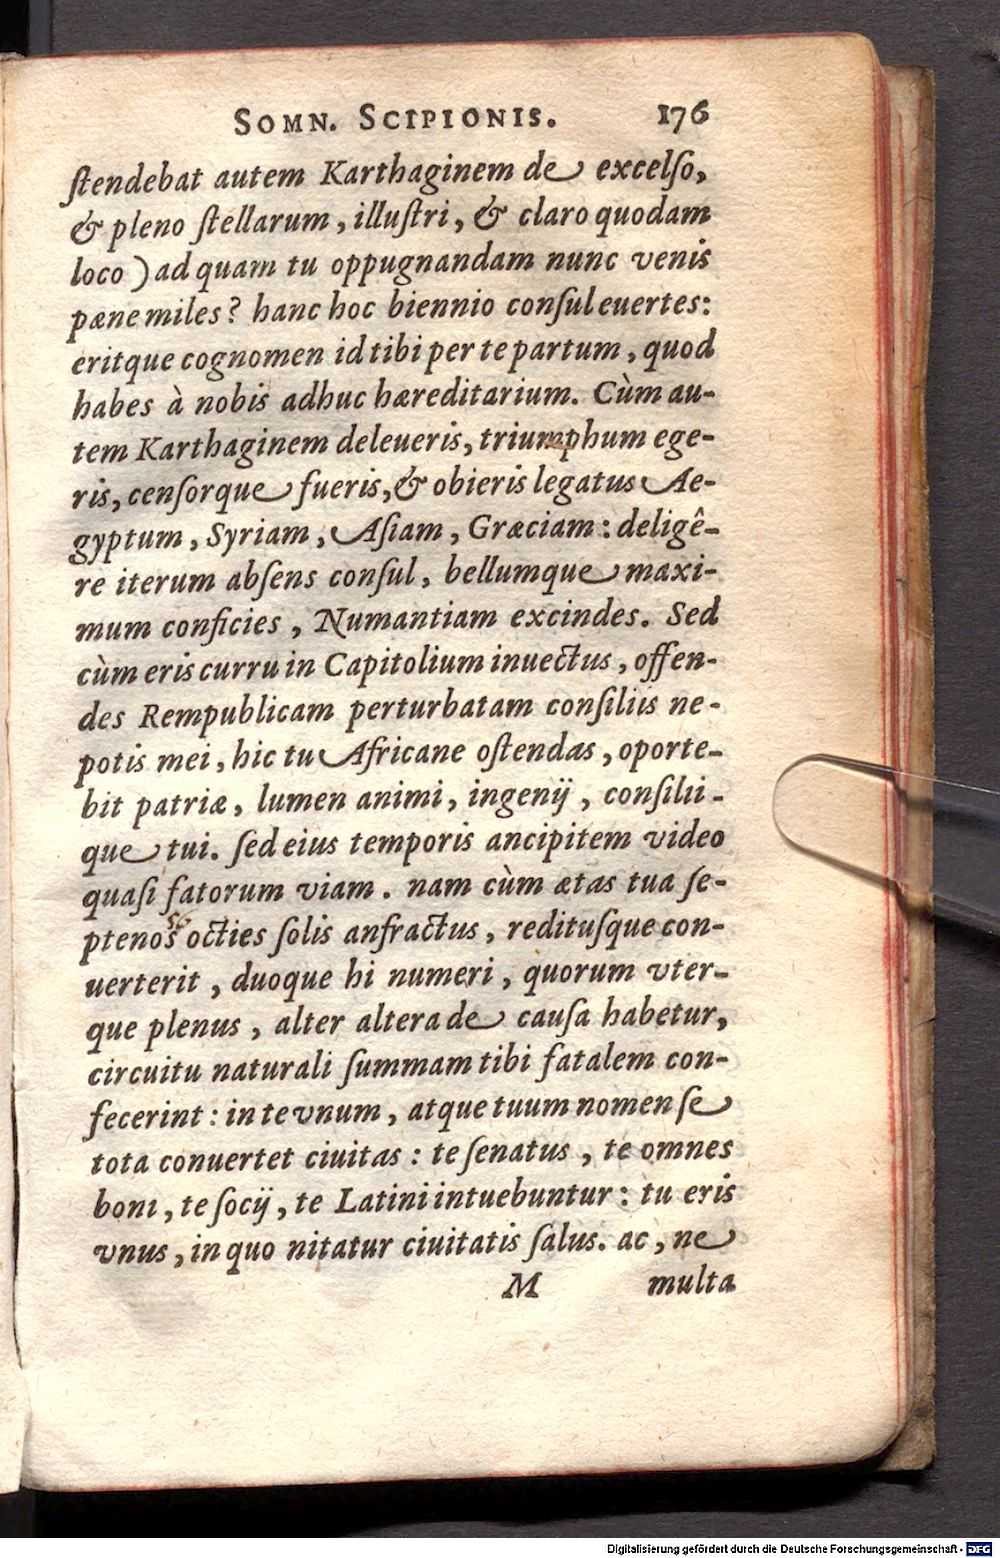 SOMN. SCIPIONIS. 176
ſtendebat autem Karthaginem de excelſo,
& pleno ſtellarum, illuſtri, & claro quodam
loco) ad quam tu oppugnandam nunc venis
pæne miles? hanc hoc biennio conſul euertes:
eritque cognomen id tibi per te partum, quod
habes à nobis adhuc hæreditarium. Cùm au-
tem Karthaginem deleueris, triumphum ege-
ris, cenſorque fueris, & obieris legatus Ae-
gyptum, Syriam, Aſiam, Græciam: deligê-
re iterum abſens conſul, bellumque maxi-
mum conficies, Numantiam excindes. Sed
cùm eris curru in Capitolium inuectus, offen-
des Rempublicam perturbatam conſiliis ne-
potis mei, hic tu Africane oſtendas, oporte-
bit patriæ, lumen animi, ingenij, conſilii-
que tui. ſed eius temporis ancipitem video
quaſi fatorum viam. nam cùm ætas tua ſe-
56
ptenos octies ſolis anfractus, reditusque con-
uerterit, duoque hi numeri, quorum vter-
que plenus, alter altera de cauſa habetur,
circuitu naturali ſummam tibi fatalem con-
fecerint: in te vnum, atque tuum nomen ſe
tota conuertet ciuitas: te ſenatus, te omnes
boni, te ſocij, te Latini intuebuntur: tu eris
vnus, in quo nitatur ciuitatis ſalus. ac, ne
M multa
Digitalisierung gefördert durch die Deutsche Forschungsgemeinschaft - DFG